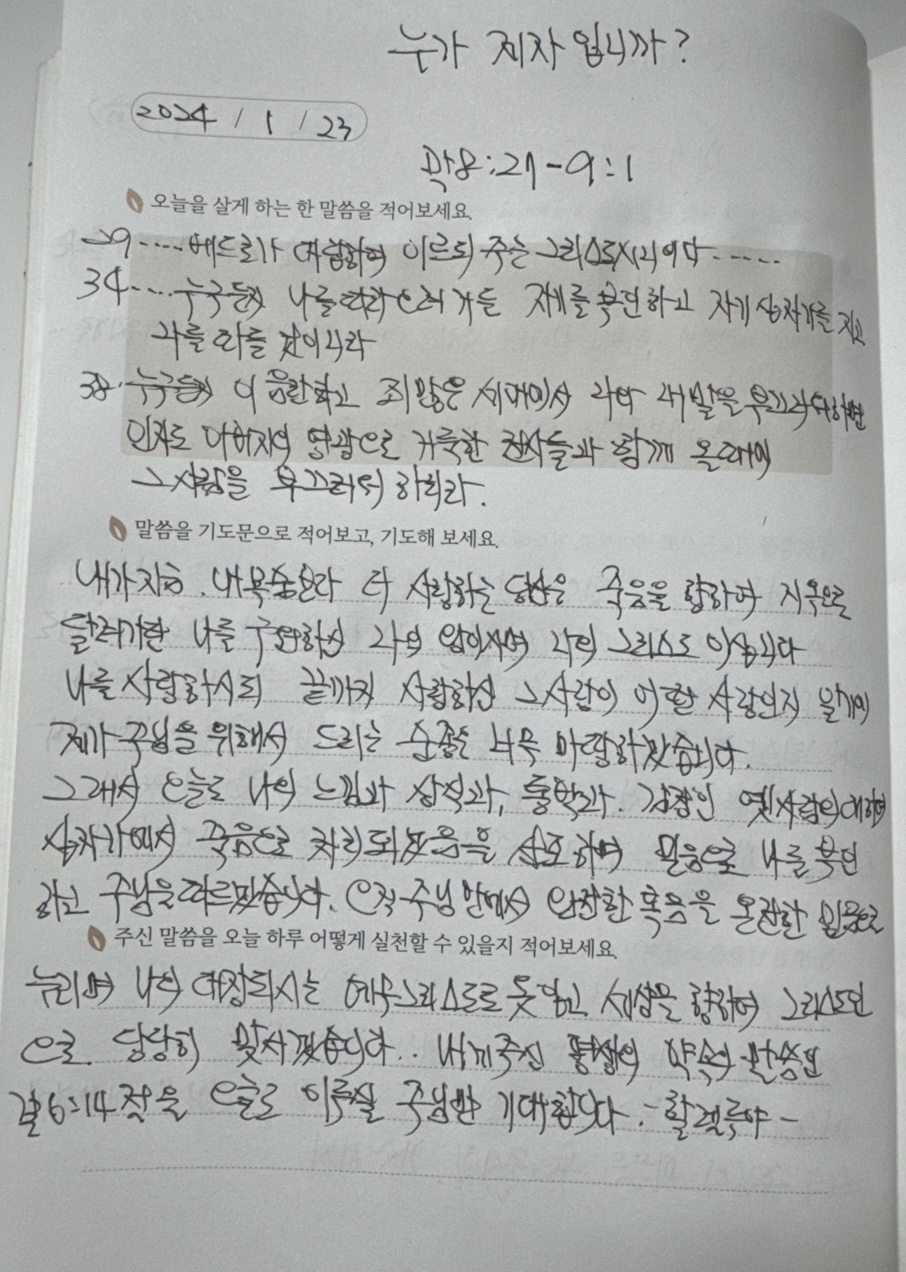 누가 제자 입니까?
2024 / 1 / 23
막8:27-9:1
오늘을 살게 하는 한 말씀을 적어보세요.
29.... 베드로가 대답하여 이르되 주는 그리스도시니이다.....
34.... 누구든지 나를 따라오려거든 자기를 부인하고 자기 십자가를 지고
나를 따를 것이니라
38. 누구든지 이 음란하고 죄많은 세대에서 나와 내 말을 부끄러워하면
인자도 아버지의 영광으로 거룩한 천사들과 함께 올 때에
그 사람을 부끄러워 하리라.
말씀을 기도문으로 적어보고, 기도해 보세요.
내가 지금, 내 목숨보다 더 사랑하는 당신은 죽음을 향하여 지옥으로
달려가던 나를 구원하신 나의 왕이시며 나의 그리스도 이십니다
나를 사랑하시되 끝까지 사랑하신 그 사랑이 어떠한 사랑인지 알기에
제가 주님을 위해서 드리는 순종은 너무 마땅하겠습니다.
그래서 오늘도 나의 느낌과 상식과, 통박과. 감정인 옛사람의 대하여
십자가에서 죽음으로 처리되었음을 선포하며 믿음으로 나를 부인
하고 주님을 따르겠습니다. 오직 주님 안에서 완전한 복음을 온전한 믿음으로
주신 말씀을 오늘 하루 어떻게 실천할 수 있을지 적어보세요.
누리며 나의 대장되시는 예수그리스도로 옷 입고 세상을 향하여 그리스도인
으로 당당히 맞서겠습니다.. 내게 주신 평생의 약속의 말씀인
갈6:14 절을 오늘도 이루실 주님만 기대합니다. - 할렐루야 -